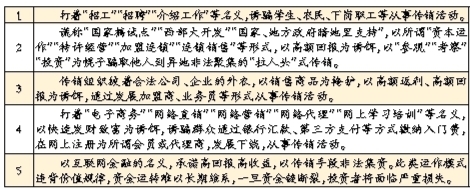 1 打着“招工”“招聘”“介绍工作”等名义，诱骗学生、农民、下岗职工等从事传销活动。
2 谎称“国家搞试点”“西部大开发”“国家、地方政府暗地里支持”，以所谓“资本运
作”“特许经营”“加盟连锁”“连锁销售”等形式，以高额回报为诱饵，以“参观”“考察”
“投资”为幌子骗取他人到异地非法聚集的“拉人头”式传销。
3 传销组织披着合法公司、企业的外衣，以销售商品为掩护，以高额返利、高额回
报为诱饵，通过发展加盟商、业务员等形式从事传销活动。
4 打着“电子商务”“网络直销”“网络营销”“网络代理”“网上学习培训”等名义，
以快速发财致富为诱饵，诱骗群众通过银行汇款、第三方支付等方式缴纳入门费，
在网上注册为所谓会员或代理商，发展下线，从事传销活动。
5 以互联网金融的名义，承诺高回报高收益，以传销手段非法集资。此类运作模式
违背价值规律，资金运转难以长期维系，一旦资金链断裂，投资者将面临严重损失。